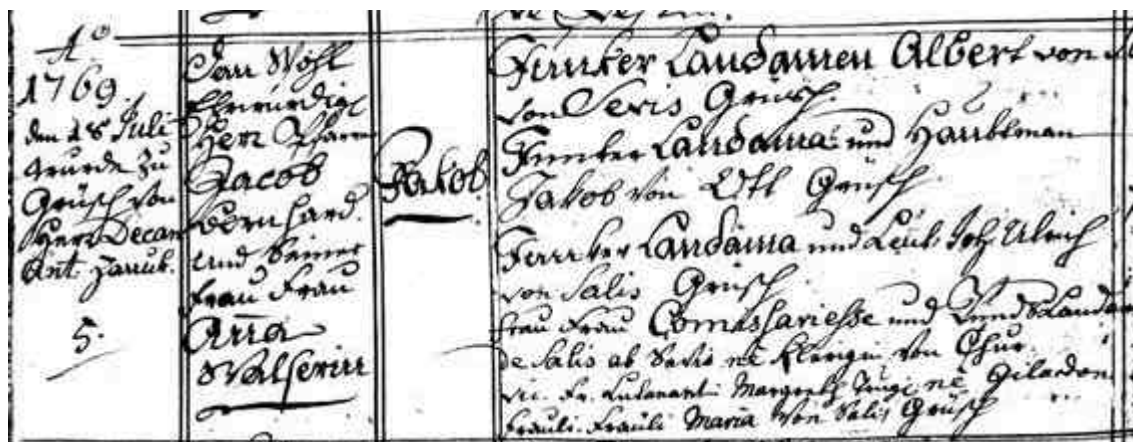 Aº
1769.
den 18 Juli
wurde zu
Grüsch von
Herr Decan
Ant.
5.
Dem Wohl
Ehrwürdige
Herr Pfarrer
Jacob
Bernhard.
und Seiner
Frau Frau
Anna
Walserin
Jakob.
Junker Landamen Albert von
von Sevis Grüsch.
Junker Landama und Haubtman
Jakob von Ott Grüsch.
Junker Landama und Leut. Joh. Ulrich
von Salis Grüsch
Frau Frau Comissariesse und
de Salis ab Sevis né von Chur.
Margreth né
Fräuli Maria von Salis Grüsch